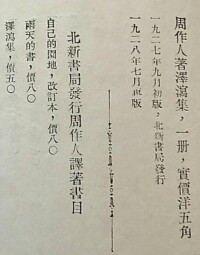 周作人著澤瀉集，一册，實價洋五角
一九二七年九月初版，北新書局發行
一九二八年七月再版
北新書局發行周作人譯著書目
自己的園地，改訂本，價八〇
雨天的書，價八〇
澤瀉集，價五〇